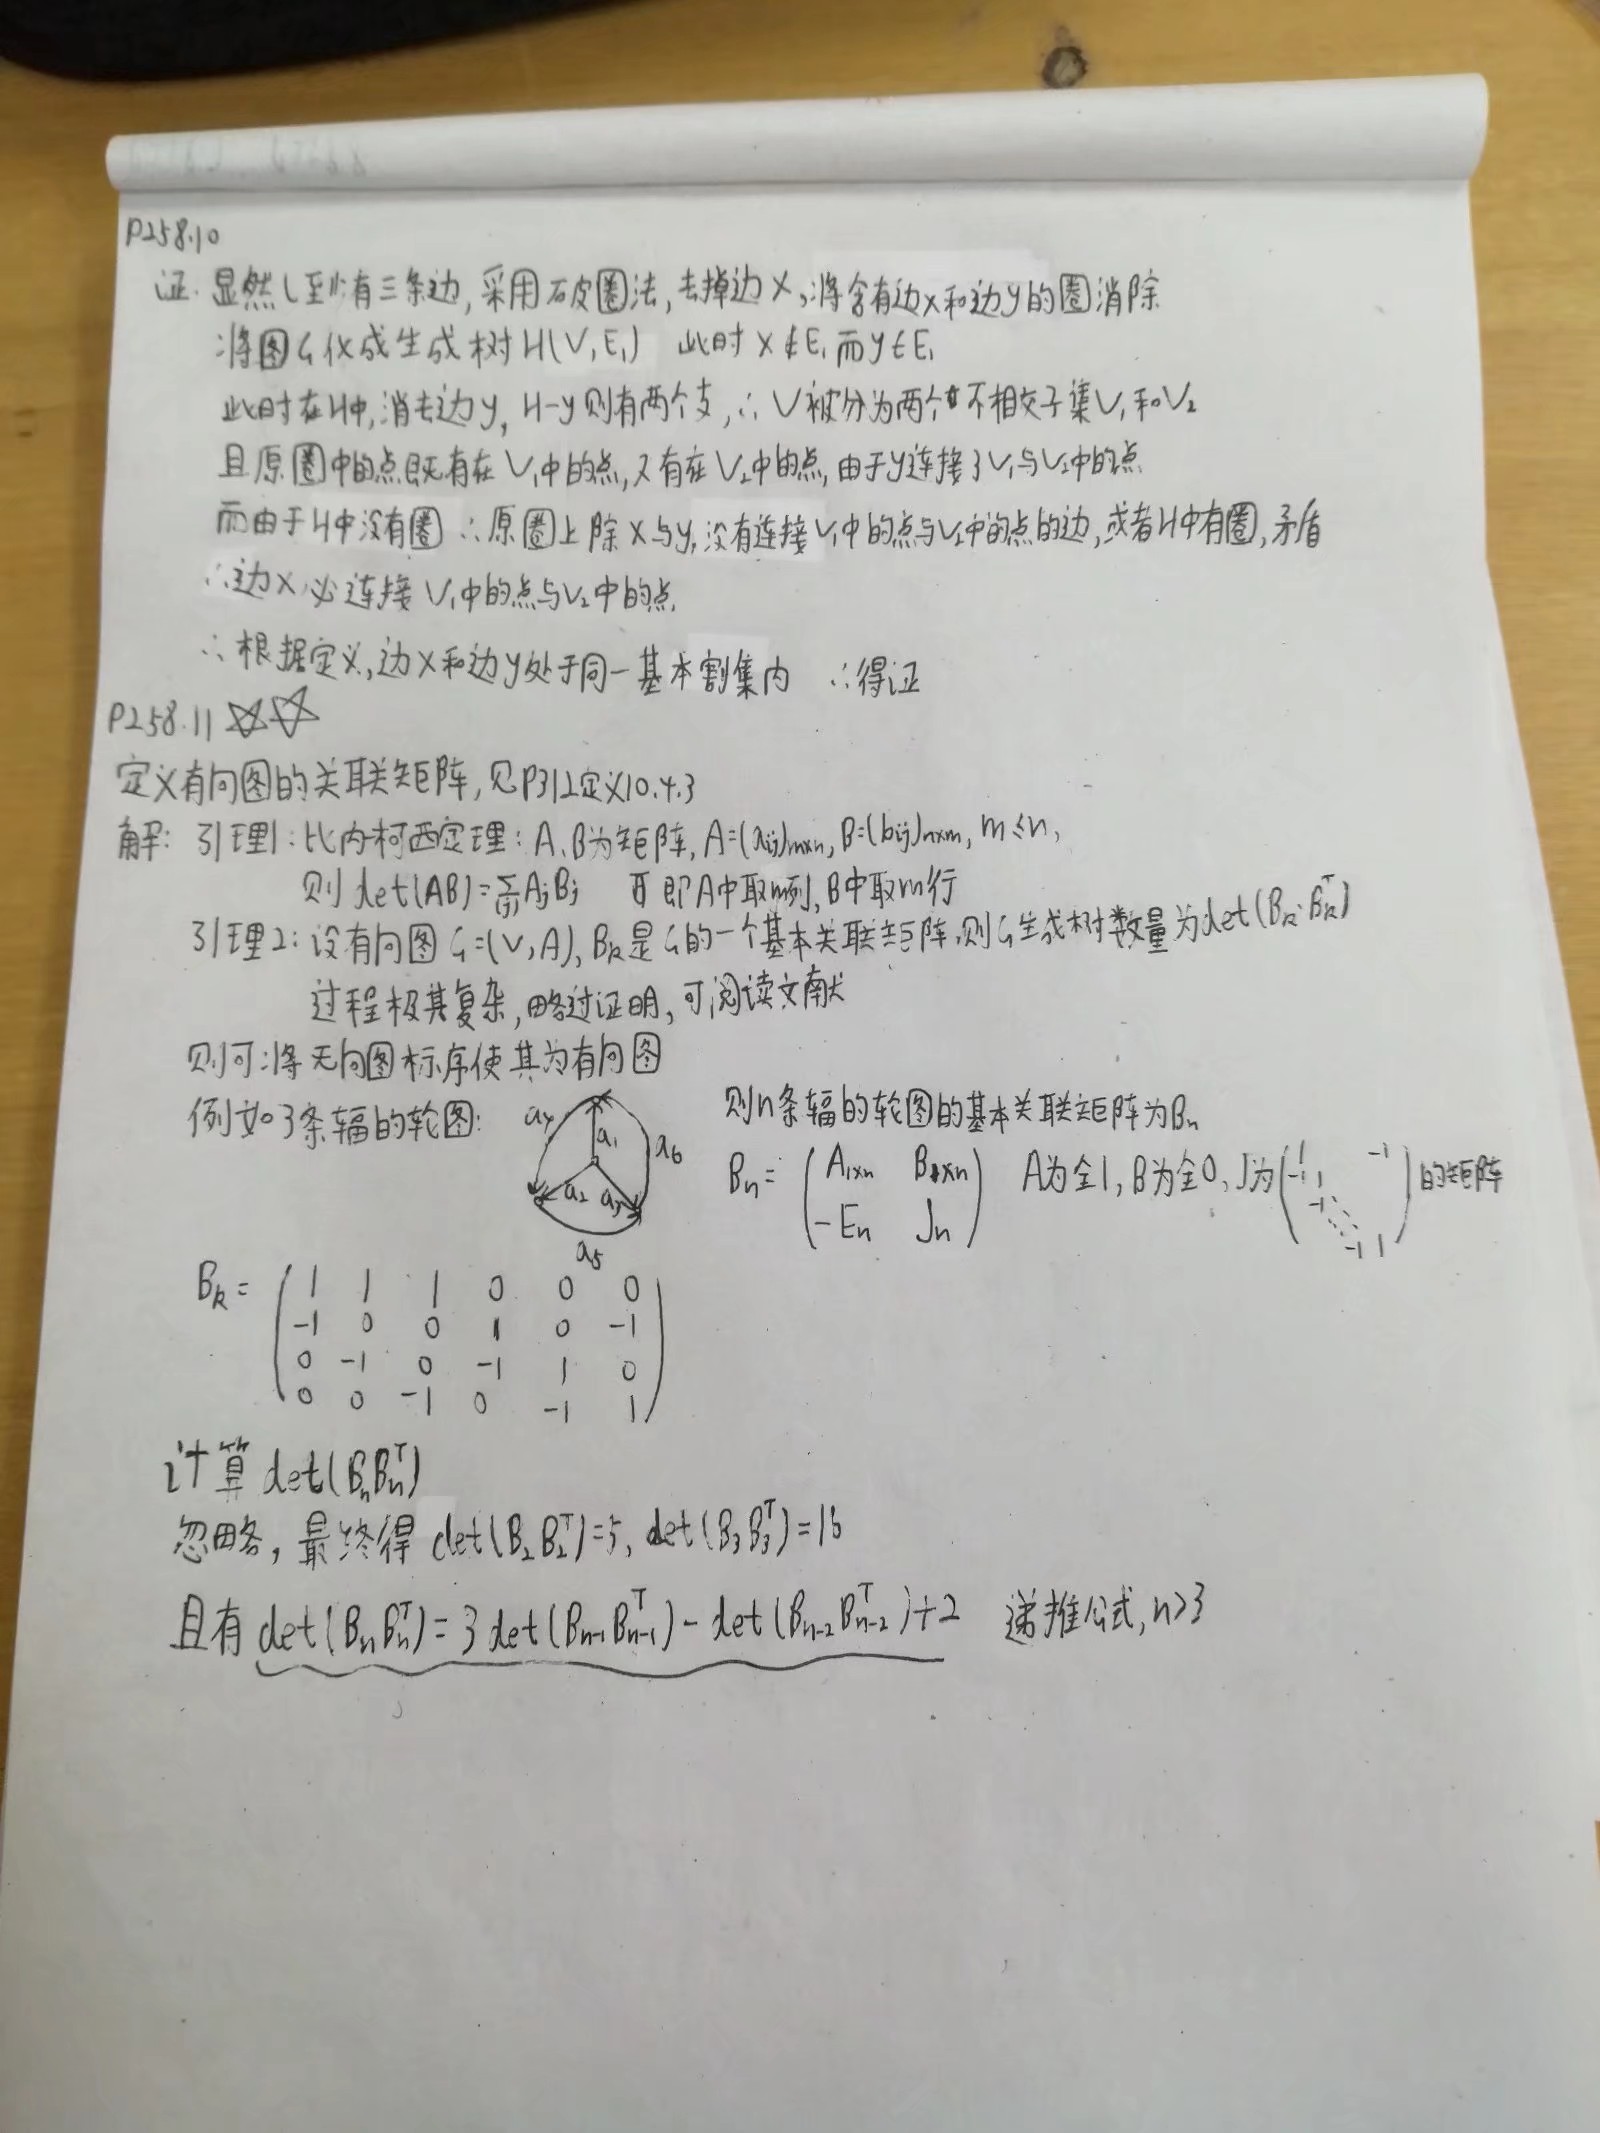 P258.10
证. 显然L至少有三条边,采用破圈法,去掉边x,将含有边x和边y的圈消除
将图G化成生成树H(V,E₁) 此时x∉E₁而y∈E₁
此时在H中,消去边y, H-y则有两个支,∴V被分为两个不相交子集V₁和V₂
且原圈中的点既有在V₁中的点,又有在V₂中的点,由于y连接了V₁与V₂中的点.
而由于H中没有圈 ∴原圈上除x与y,没有连接V₁中的点与V₂中的点的边,或者H中有圈,矛盾
∴边x必连接V₁中的点与V₂中的点.
∴根据定义,边x和边y处于同一基本割集内 ∴得证
P258.11 ☆☆
定义有向图的关联矩阵,见P312定义10.4.3
解: 引理1:比内柯西定理:A、B为矩阵, A=(aij)m×n, B=(bij)n×m, m≤n,
则det(AB)=∑AjBj 即A中取m列,B中取m行
引理2:设有向图G=(V,A), Bk是G的一个基本关联矩阵,则G生成树数量为det(Bk·Bkᵀ)
过程极其复杂,略过证明,可阅读文献
则可将无向图标序使其为有向图
例如3条辐的轮图:
a₄ a₁ a₆
a₂ a₃
a₅
则n条辐的轮图的基本关联矩阵为Bn
Bn= ( A1×n B1×n
-En Jn ) A为全1,B为全0,J为( 1 -1
-1 1
-1
-1 1 )的矩阵
Bk= ( 1 1 1 0 0 0
-1 0 0 1 0 -1
0 -1 0 -1 1 0
0 0 -1 0 -1 1 )
计算det(BnBnᵀ)
忽略,最终得det(B₂B₂ᵀ)=5, det(B₃B₃ᵀ)=16
且有det(BnBnᵀ)=3det(Bn-1Bn-1ᵀ)-det(Bn-2Bn-2ᵀ)+2 递推公式,n>3